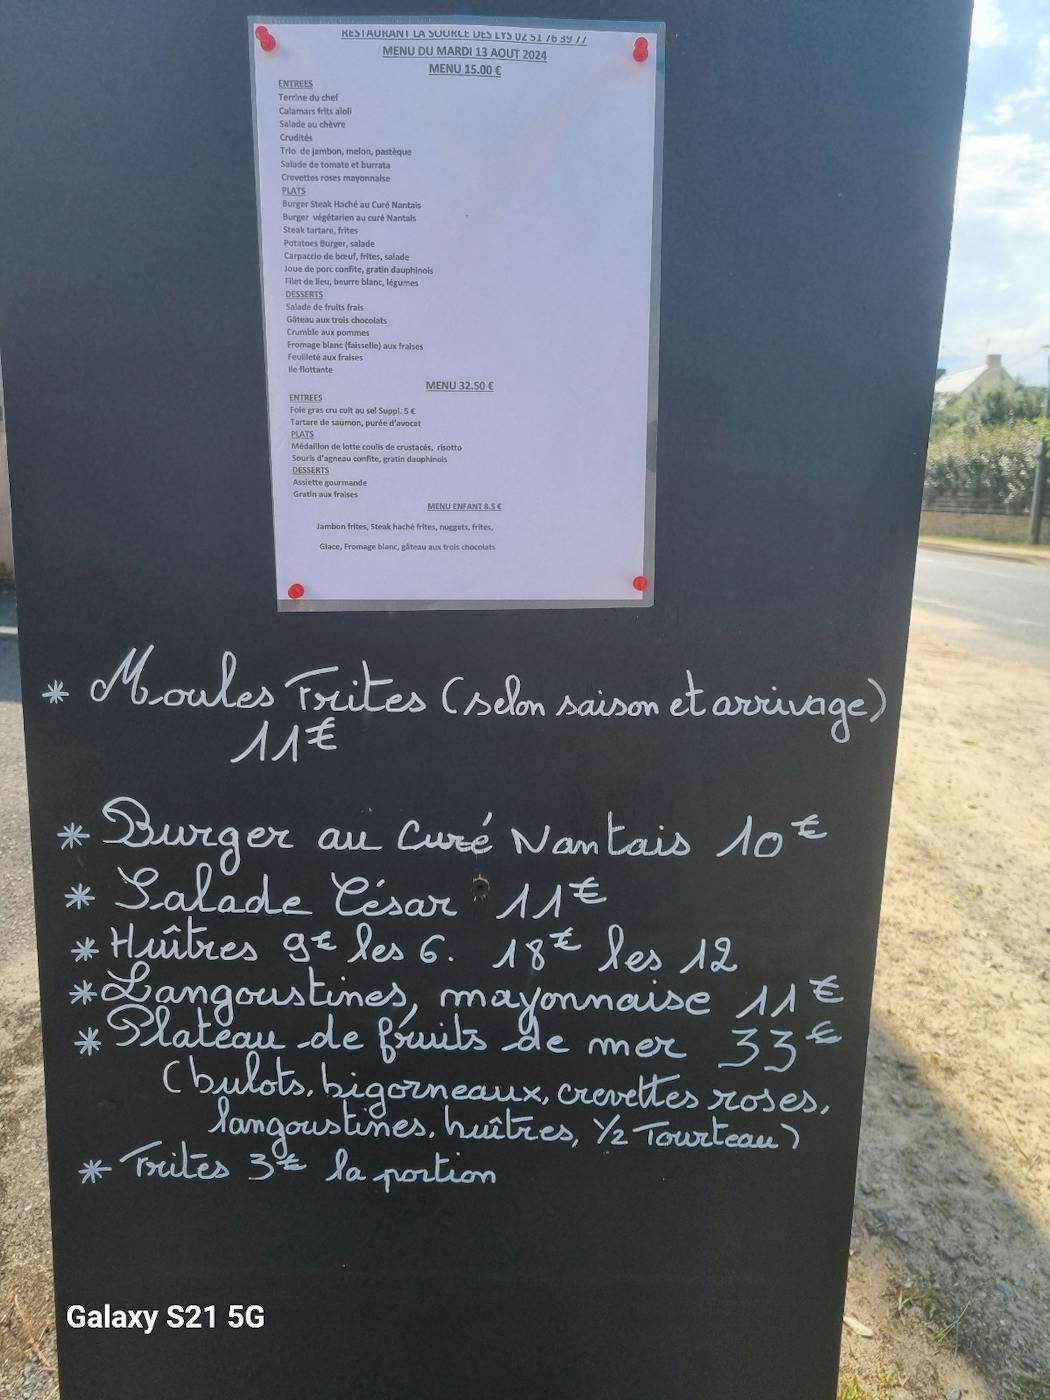 RESTAURANT LA SOURCE DES LYS 02 51 76 39 77
MENU DU MARDI 13 AOUT 2024
MENU 15.00 €
ENTREES
Terrine du chef
Calamars frits aïoli
Salade au chèvre
Crudités
Trio de jambon, melon, pastèque
Salade de tomate et burrata
Crevettes roses mayonnaise
PLATS
Burger Steak Haché au Curé Nantais
Burger végétarien au curé Nantais
Steak tartare, frites
Potatoes Burger, salade
Carpaccio de bœuf, frites, salade
Joue de porc confite, gratin dauphinois
Filet de lieu, beurre blanc, légumes
DESSERTS
Salade de fruits frais
Gâteau aux trois chocolats
Crumble aux pommes
Fromage blanc (faisselle) aux fraises
Feuilleté aux fraises
Ile flottante
MENU 32.50 €
ENTREES
Foie gras cru cuit au sel Suppl. 5 €
Tartare de saumon, purée d'avocat
PLATS
Médaillon de lotte coulis de crustacés, risotto
Souris d'agneau confite, gratin dauphinois
DESSERTS
Assiette gourmande
Gratin aux fraises
MENU ENFANT 8.5 €
Jambon frites, Steak haché frites, nuggets, frites,
Glace, Fromage blanc, gâteau aux trois chocolats
* Moules Frites (selon saison et arrivage)
11€
* Burger au Curé Nantais 10€
* Salade César 11€
* Huîtres 9€ les 6. 18€ les 12
* Langoustines, mayonnaise 11€
* Plateau de fruits de mer 33€
(bulots, bigorneaux, crevettes roses,
langoustines, huîtres, 1/2 Tourteau)
* Frites 3€ la portion
Galaxy S21 5G